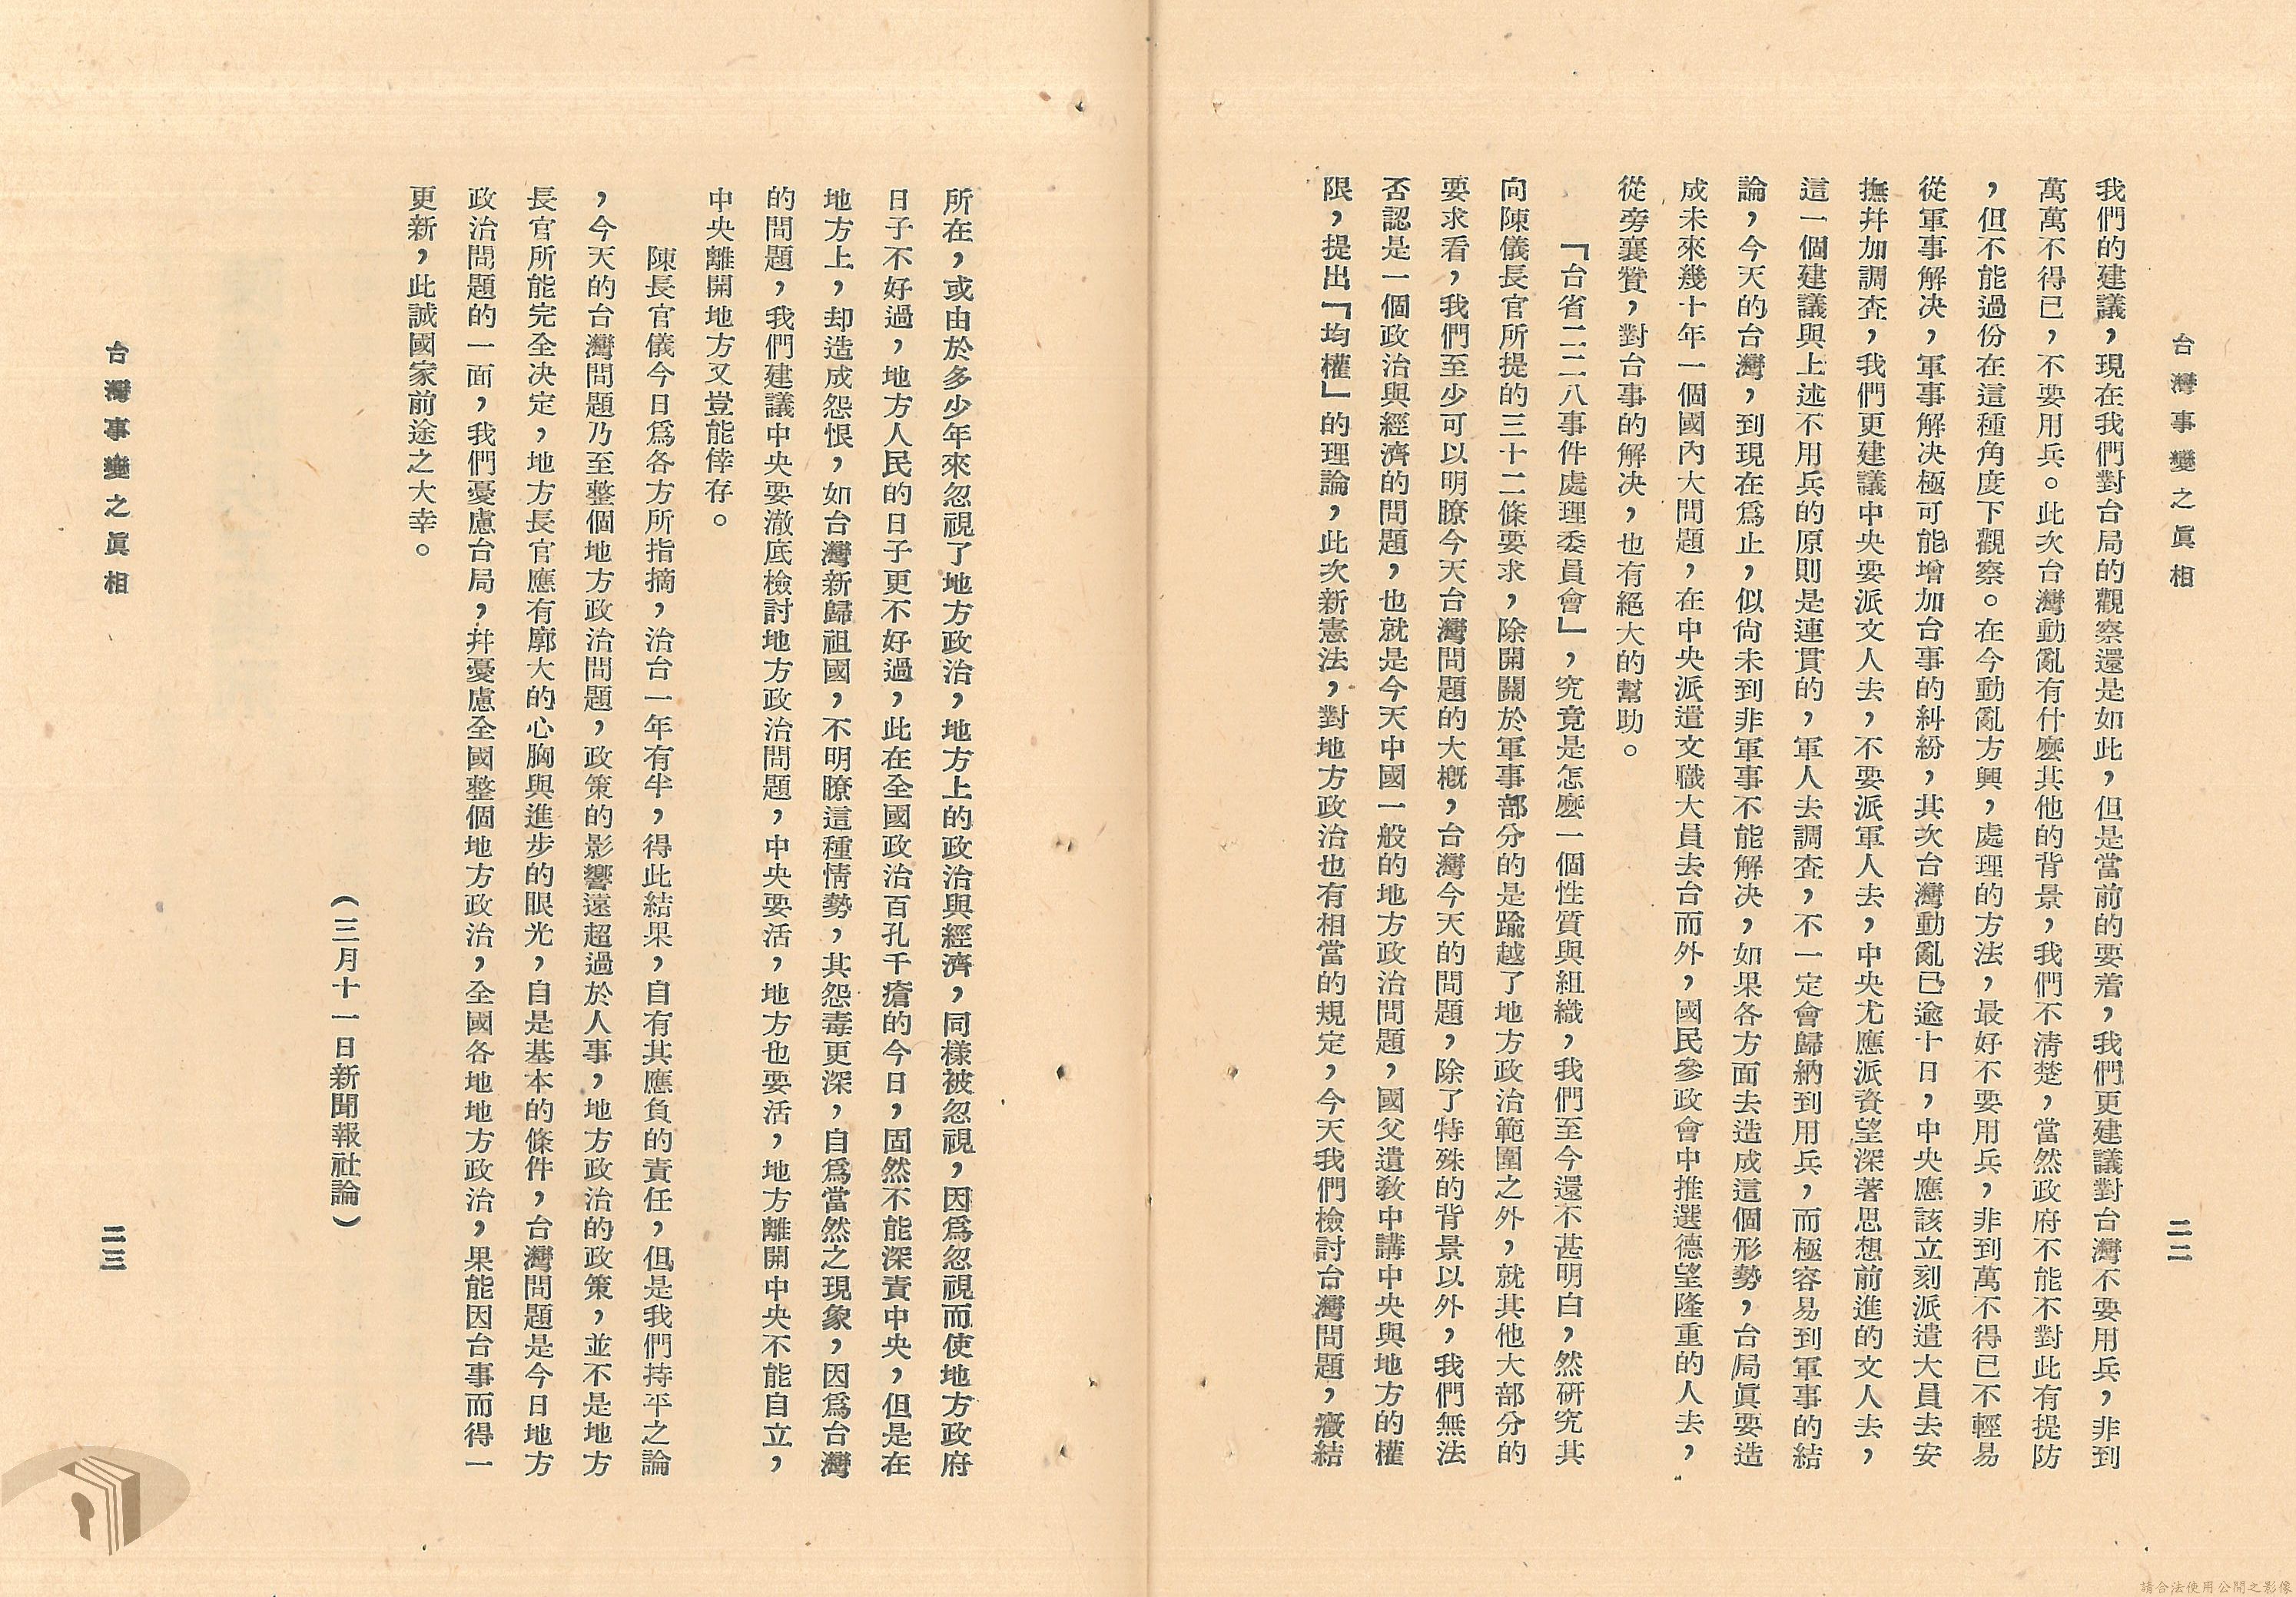 台灣事變之眞相
二二
我們的建議，現在我們對台局的觀察還是如此，但是當前的要着，我們更建議對台灣不要用兵，非到
萬萬不得已，不要用兵。此次台灣動亂有什麽其他的背景，我們不清楚，當然政府不能不對此有提防
，但不能過份在這種角度下觀察。在今動亂方興，處理的方法，最好不要用兵，非到萬不得已不輕易
從軍事解決，軍事解決極可能增加台事的糾紛，其次台灣動亂已逾十日，中央應該立刻派遣大員去安
撫幷加調查，我們更建議中央要派文人去，不要派軍人去，中央尤應派資望深著思想前進的文人去，
這一個建議與上述不用兵的原則是連貫的，軍人去調查，不一定會歸納到用兵，而極容易到軍事的結
論，今天的台灣，到現在爲止，似尙未到非軍事不能解決，如果各方面去造成這個形勢，台局眞要造
成未來幾十年一個國內大問題，在中央派遣文職大員去台而外，國民參政會中推選德望隆重的人去，
從旁襄贊，對台事的解決，也有絕大的幫助。
「台省二二八事件處理委員會」，究竟是怎麽一個性質與組織，我們至今還不甚明白，然硏究其
向陳儀長官所提的三十二條要求，除開關於軍事部分的是踰越了地方政治範圍之外，就其他大部分的
要求看，我們至少可以明瞭今天台灣問題的大槪，台灣今天的問題，除了特殊的背景以外，我們無法
否認是一個政治與經濟的問題，也就是今天中國一般的地方政治問題，國父遺敎中講中央與地方的權
限，提出「均權」的理論，此次新憲法，對地方政治也有相當的規定，今天我們檢討台灣問題，癥結
所在，或由於多少年來忽視了地方政治，地方上的政治與經濟，同樣被忽視，因爲忽視而使地方政府
日子不好過，地方人民的日子更不好過，此在全國政治百孔千瘡的今日，固然不能深責中央，但是在
地方上，却造成怨恨，如台灣新歸祖國，不明瞭這種情勢，其怨毒更深，自爲當然之現象，因爲台灣
的問題，我們建議中央要澈底檢討地方政治問題，中央要活，地方也要活，地方離開中央不能自立，
中央離開地方又豈能倖存。
陳長官儀今日爲各方所指摘，治台一年有半，得此結果，自有其應負的責任，但是我們持平之論
，今天的台灣問題乃至整個地方政治問題，政策的影響遠超過於人事，地方政治的政策，並不是地方
長官所能完全决定，地方長官應有廓大的心胸與進步的眼光，自是基本的條件，台灣問題是今日地方
政治問題的一面，我們憂慮台局，幷憂慮全國整個地方政治，全國各地地方政治，果能因台事而得一
更新，此誠國家前途之大幸。
（三月十一日新聞報社論）
台灣事變之眞相
二三
請合法使用公開之影像